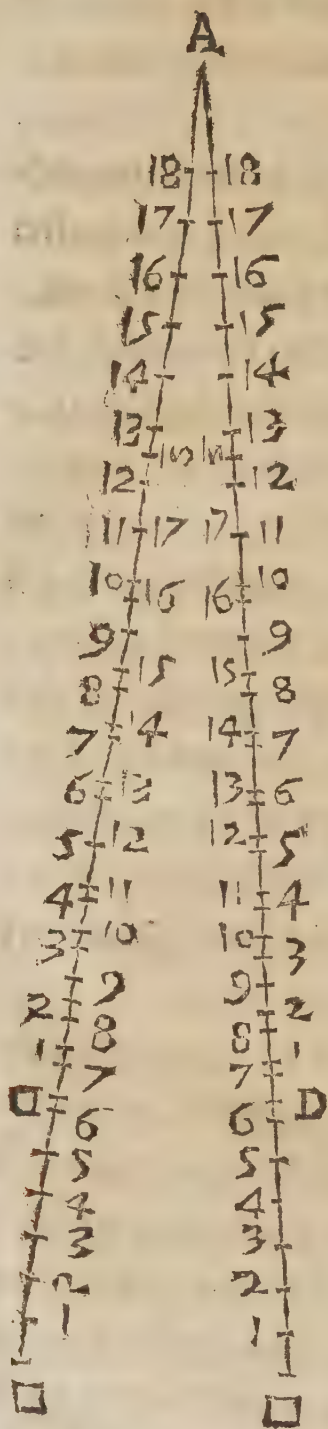 A
18 18
17 17
16 16
15 15
14 14
13 13
12 12
11 17 17 11
10 16 16 10
9 9
8 15 15 8
7 14 14 7
6 13 13 6
5 12 12 5
4 11 11 4
3 10 10 3
9 9
2 8 8 2
1 7 7 1
6 6 D
5 5
4 4
3 3
2 2
1 1